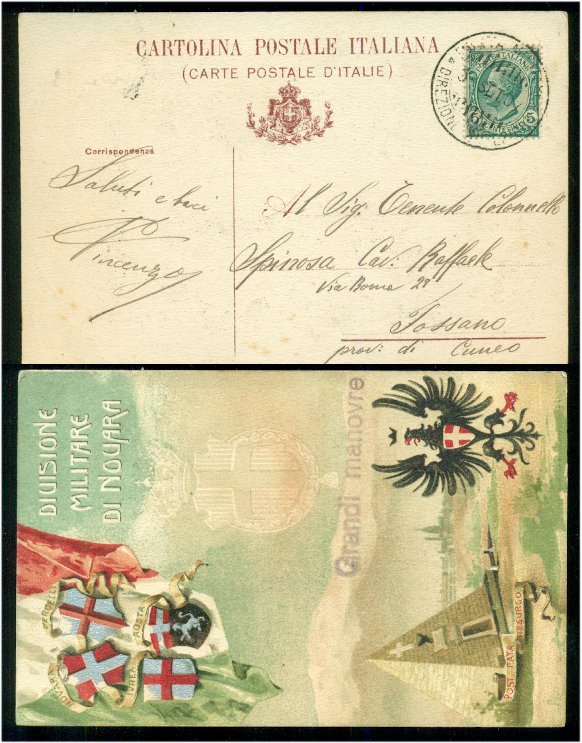 CARTOLINA POSTALE ITALIANA
(CARTE POSTALE D'ITALIE)
Corrispondenza
Saluti e baci
Vincenzo
Al Sig. Tenente Colonnello
Spinosa Cav. Raffaele
Via Roma 27
Fossano
prov. di Cuneo
DIREZIONE
DIVISIONE
MILITARE
DI NOVARA
Grandi manovre
VERCELLI
AOSTA
NOVARA
IVREA
POST FATA RESURGO